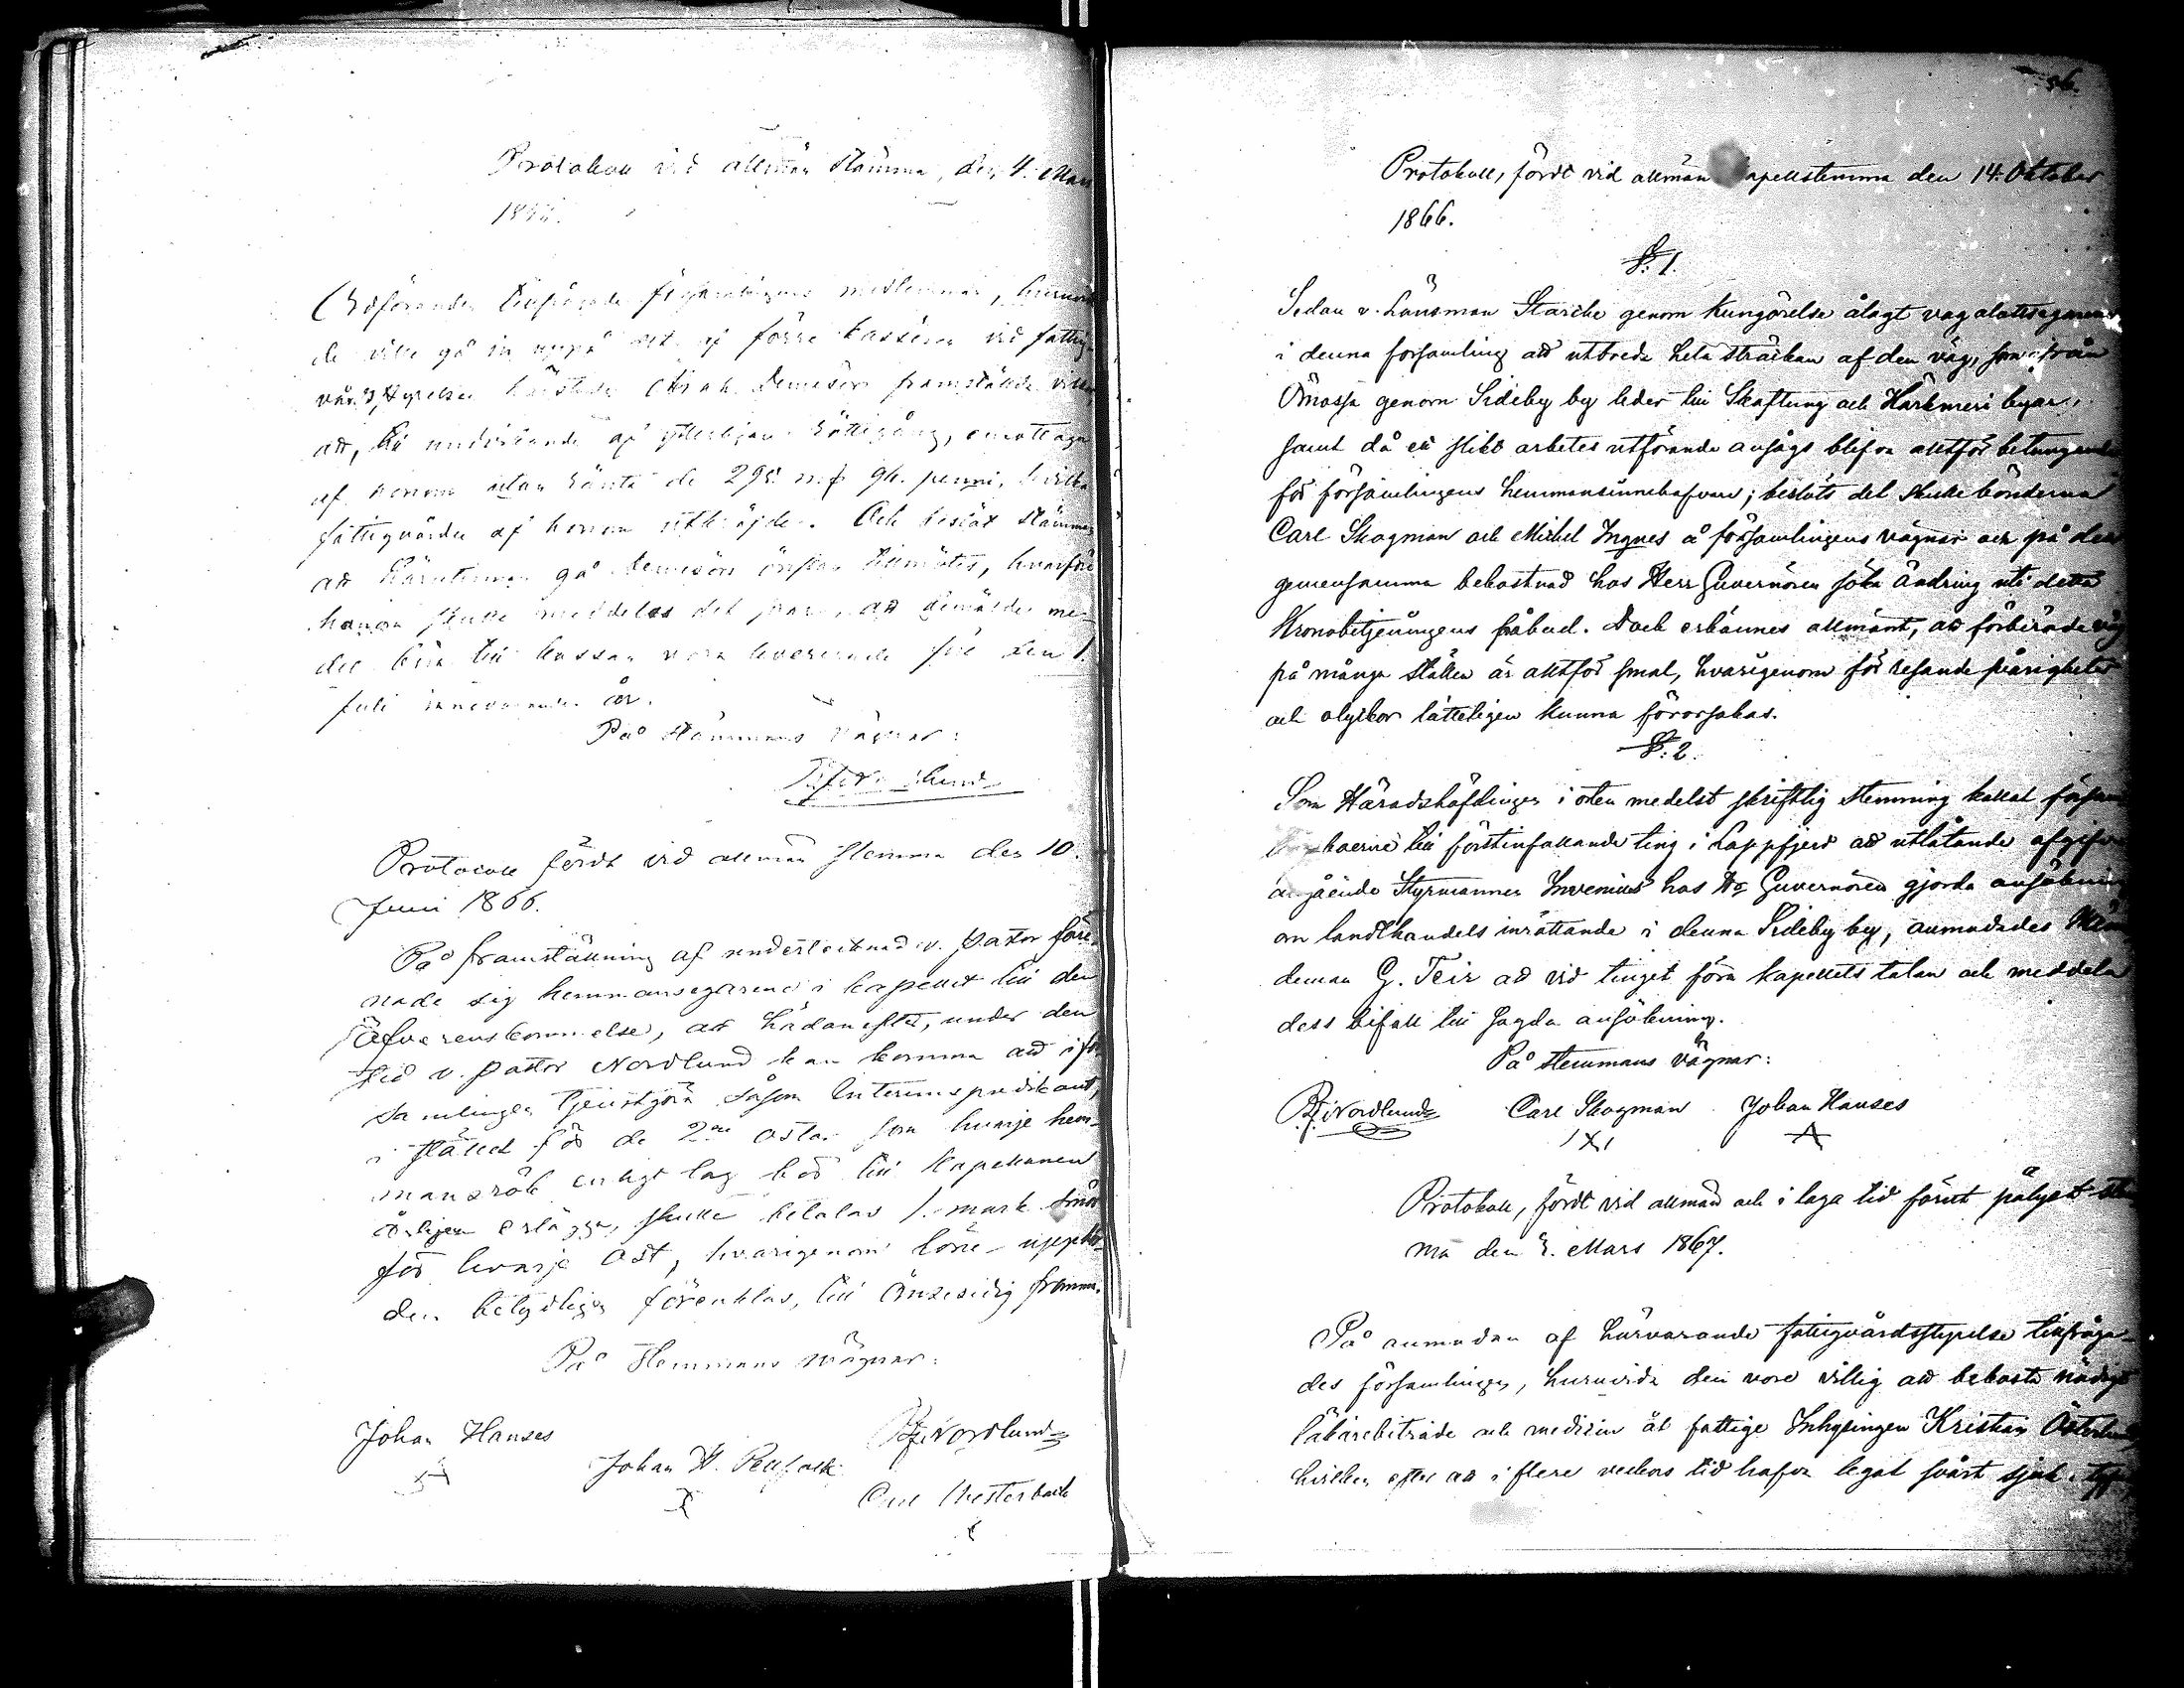 Protokoll vid allmän stämma, den 4. Mars
18
Ordföranden tillfrågade församlingens medlemmar, huruvida
de ville gå in uppå det af förre kassören vid fattig
vårdsstyrelsen framstälda vilkor
att, till undvikande af ytterligare rättegång, emottaga
af honom utan ränta de 295 mf 94. penni, hvilka
fattigvården af honom utkräfde. Och beslöt stämman
att gå önskan tillmötes, hvarföre
honom skulle meddelas det svar, att
del till kassan vara levererade före den 1.
Juli innevarande år.
På stämmans vägnar:
Nordlund
Protocoll fördt vid allmän stemma den 10.
Juni 1866.
På framställning af undertecknad v. pastor före-
nade sig hemmansegarena i kapellet till den
öfverenskommelse, att hädanefter, under den
tid v. pastor Nordlund kan komma att i för
samlingen tjenstgöra såsom interimspredikant,
i stället för de 2ne ostar som hvarje hem-
mansrök enligt lag bör till kapellanen
årligen erlägga, skulle betalas 1. mark smör
för hvarje ost, hvarigenom löne-uppbör-
den betydligen förenklas, till ömsesidig fromma.
På Stemmans vägnar:
Johan Hanses
Nordlund
Johan H. Pellfolk
Carl Westerback
56.
Protokoll, fördt vid allmän kapellstemma den 14. Oktober
1866.
§: 1.
Sedan v. Länsman Starcke genom kungörelse ålagt väg alottsegarena
i denna församling att utbreda hela sträckan af den väg, som från
Ömossa genom Sideby by leder till Skaftung och Härkmeri byar,
samt då ett slikt arbetes utförande ansågs blifva alltför betungande
för församlingens hemmansinnehafvare; beslöts det skulle bönderna
Carl Skogman och Michel Ingves å församlingens vägnar och på dess
gemensamma bekostnad hos Herr Guvernören söka ändring uti detta
Kronobetjeningens påbud. Dock erkännes allmänt, att förberörde väg
på många ställen är alltför smal, hvarigenom för resande svårigheter
och olyckor lätteligen kunna förorsakas.
§: 2.
Som Häradshöfdingen i orten medelst skriftlig stemning kallat försam
boerne till förstinfallande ting i Lappfjerd att utlåtande afgifva
angående Styrmannen Invenius hos Hr Guvernören gjorda ansökning
om landthandels inrättande i denna Sideby by, anmodades Näm
deman G. Teir att vid tinget föra kapellets talan och meddela
dess bifall till sagda ansökning.
På stemmans vägnar:
Nordlund Carl Skogman Johan Hanses
Protokoll, fördt vid allmän och i laga tid förut pålyst stem
ma den 3. Mars 1867.
På anmodan af härvarande fattigvårdsstyrelse tillfråga-
des församlingen, huruvida den vore villig att bekosta nödigt
läkarebiträde och medicin åt fattige Inhysingen Kristian Österlund,
hvilken efter att i flere veckors tid hafva legat svårt sjuk i